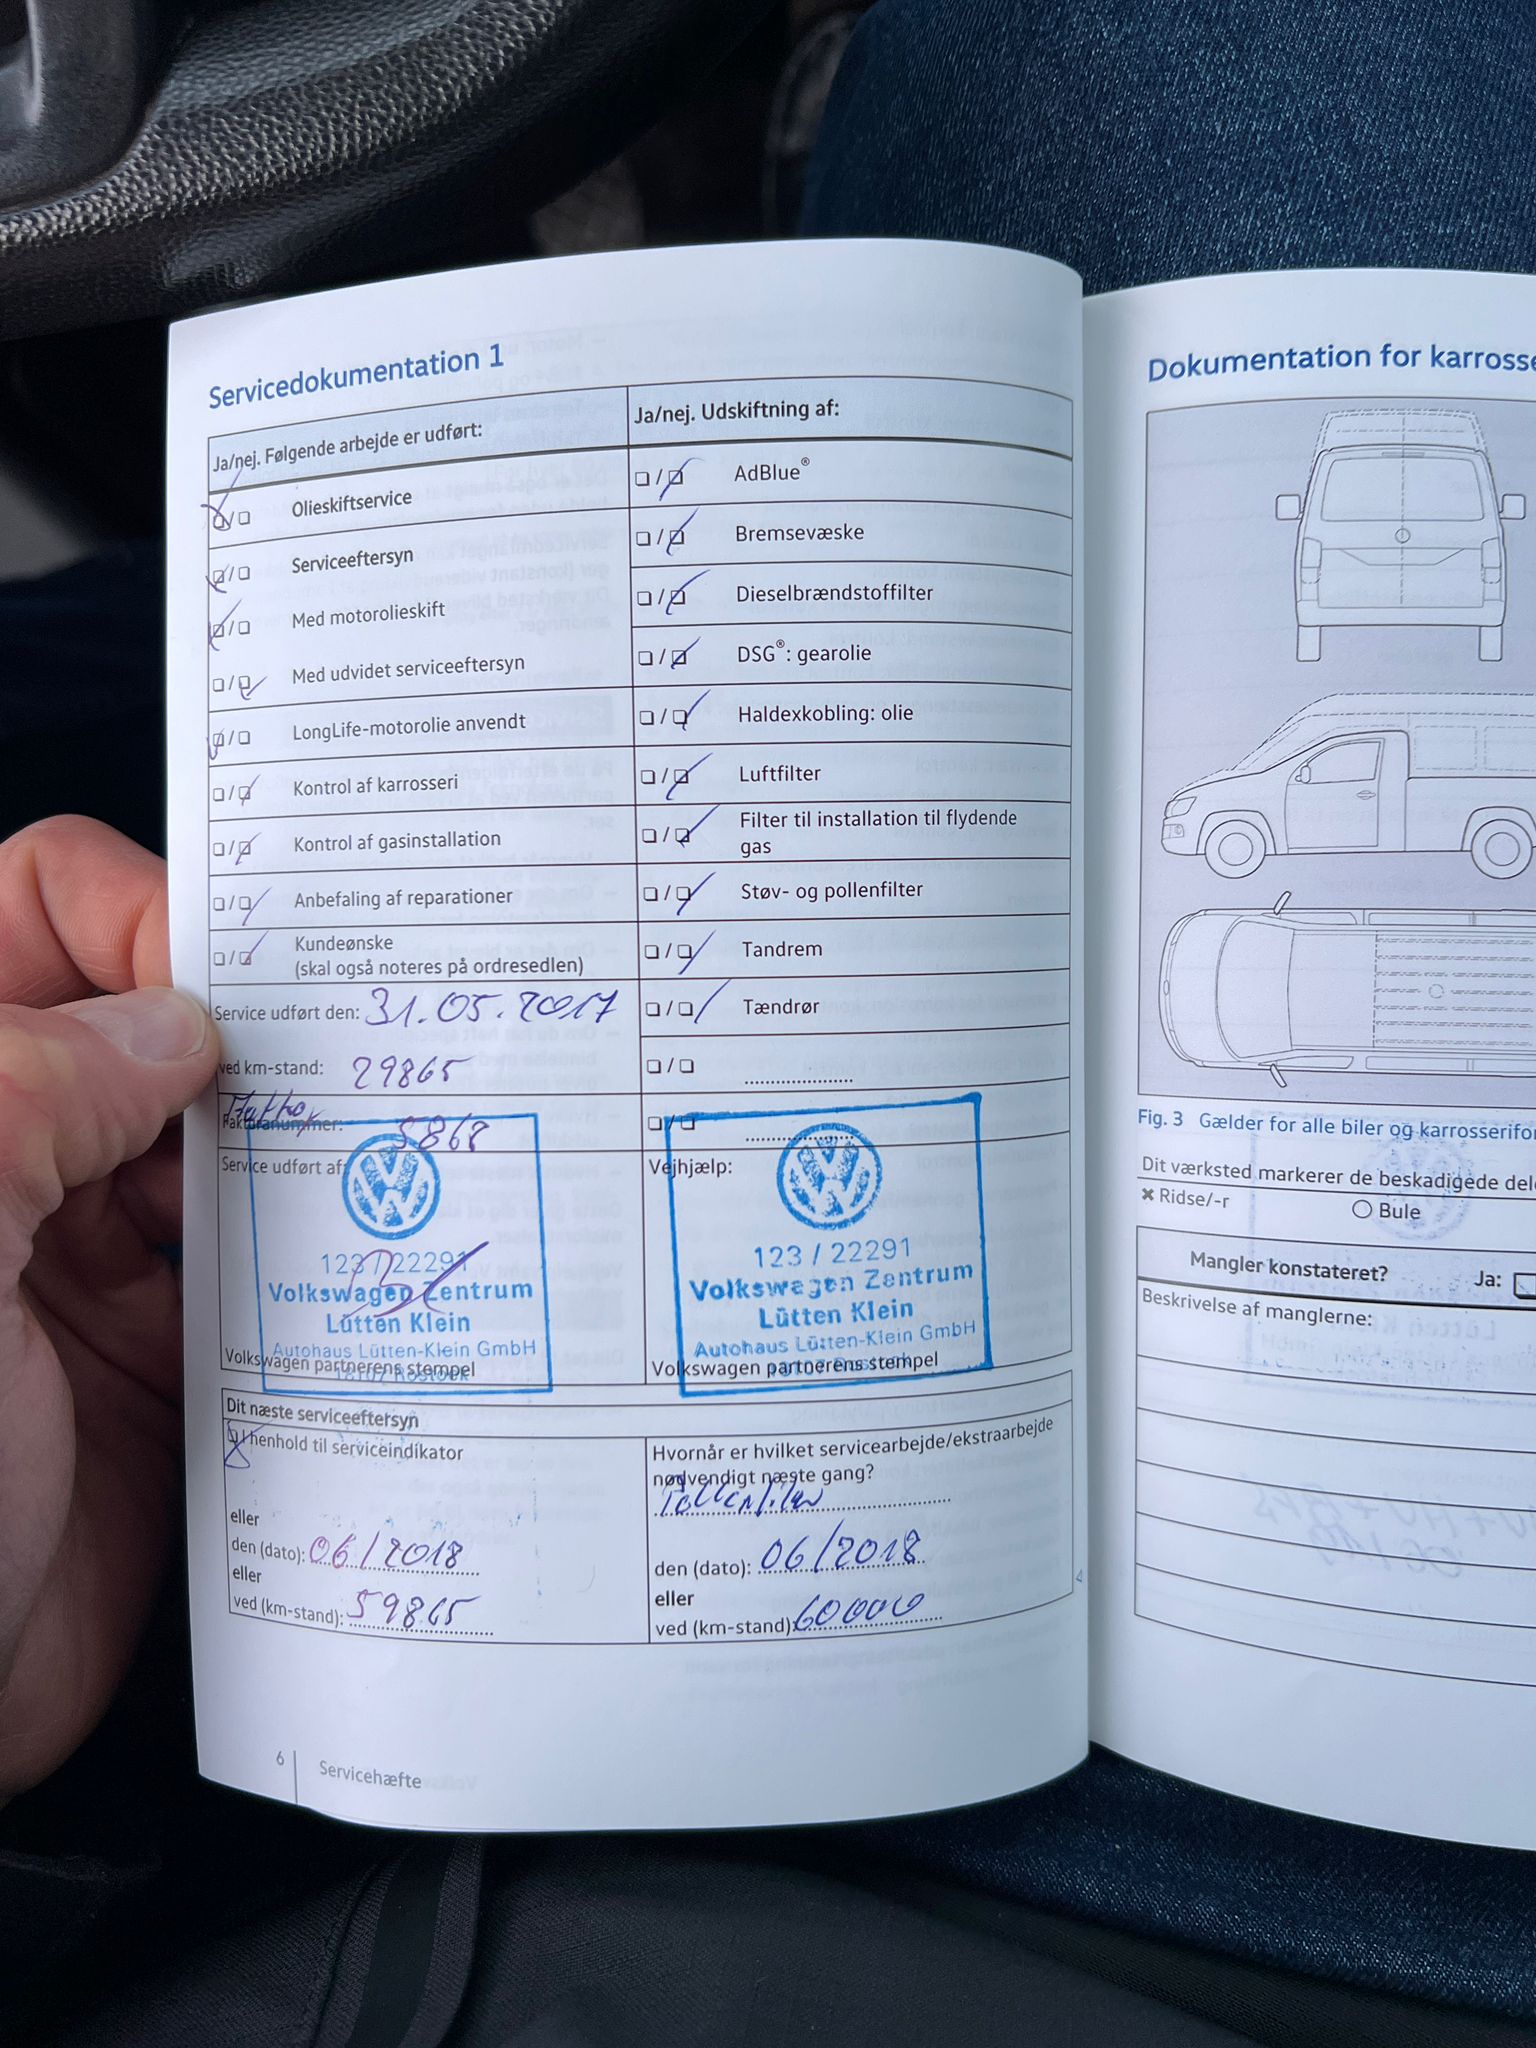 Servicedokumentation 1
Ja/nej. Følgende arbejde er udført:
Olieskiftservice
Serviceeftersyn
Med motorolieskift
Med udvidet serviceeftersyn
LongLife-motorolie anvendt
Kontrol af karrosseri
Kontrol af gasinstallation
Anbefaling af reparationer
Kundeønske
(skal også noteres på ordresedlen)
Service udført den: 31.05.2017
ved km-stand: 29865
Fakturanummer: 5868
Service udført af:
123 / 22291
Volkswagen Zentrum
Lütten Klein
Autohaus Lütten-Klein GmbH
18107 Rostock
Volkswagen partnerens stempel
Ja/nej. Udskiftning af:
AdBlue®
Bremsevæske
Dieselbrændstoffilter
DSG®: gearolie
Haldexkobling: olie
Luftfilter
Filter til installation til flydende
gas
Støv- og pollenfilter
Tandrem
Tændrør
Vejhjælp:
123 / 22291
Volkswagen Zentrum
Lütten Klein
Autohaus Lütten-Klein GmbH
18107 Rostock
Volkswagen partnerens stempel
Dit næste serviceeftersyn
I henhold til serviceindikator
eller
den (dato): 06/2018
eller
ved (km-stand): 59865
Hvornår er hvilket servicearbejde/ekstraarbejde
nødvendigt næste gang?
Pollenfilter
den (dato): 06/2018
eller
ved (km-stand): 60000
6 Servicehæfte
Dokumentation for karrosse
Fig. 3 Gælder for alle biler og karrosserifor
Dit værksted markerer de beskadigede dele
× Ridse/-r
○ Bule
Mangler konstateret? Ja:
Beskrivelse af manglerne: